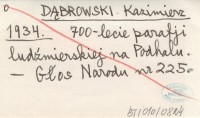 DĄBROWSKI Kazimierz
1934. 700-lecie parafji
ludźmierskiej na Podhalu.
– Głos Narodu nr 225.